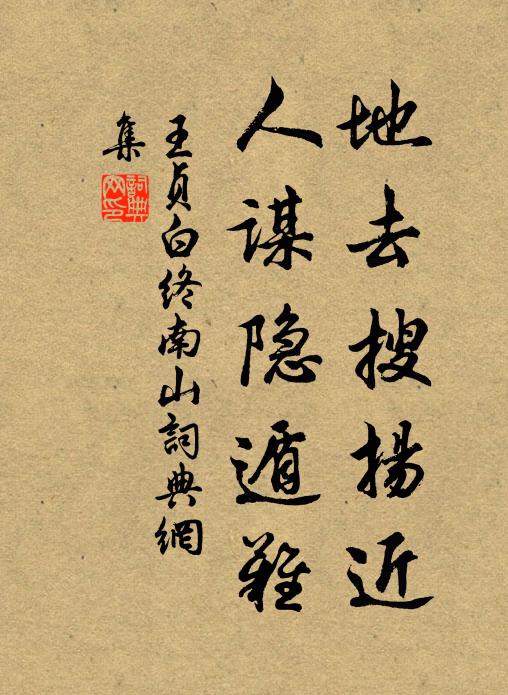 地去搜揚近
人谋隐遁難
王貞白終南山詞典網
集
詞典
網印